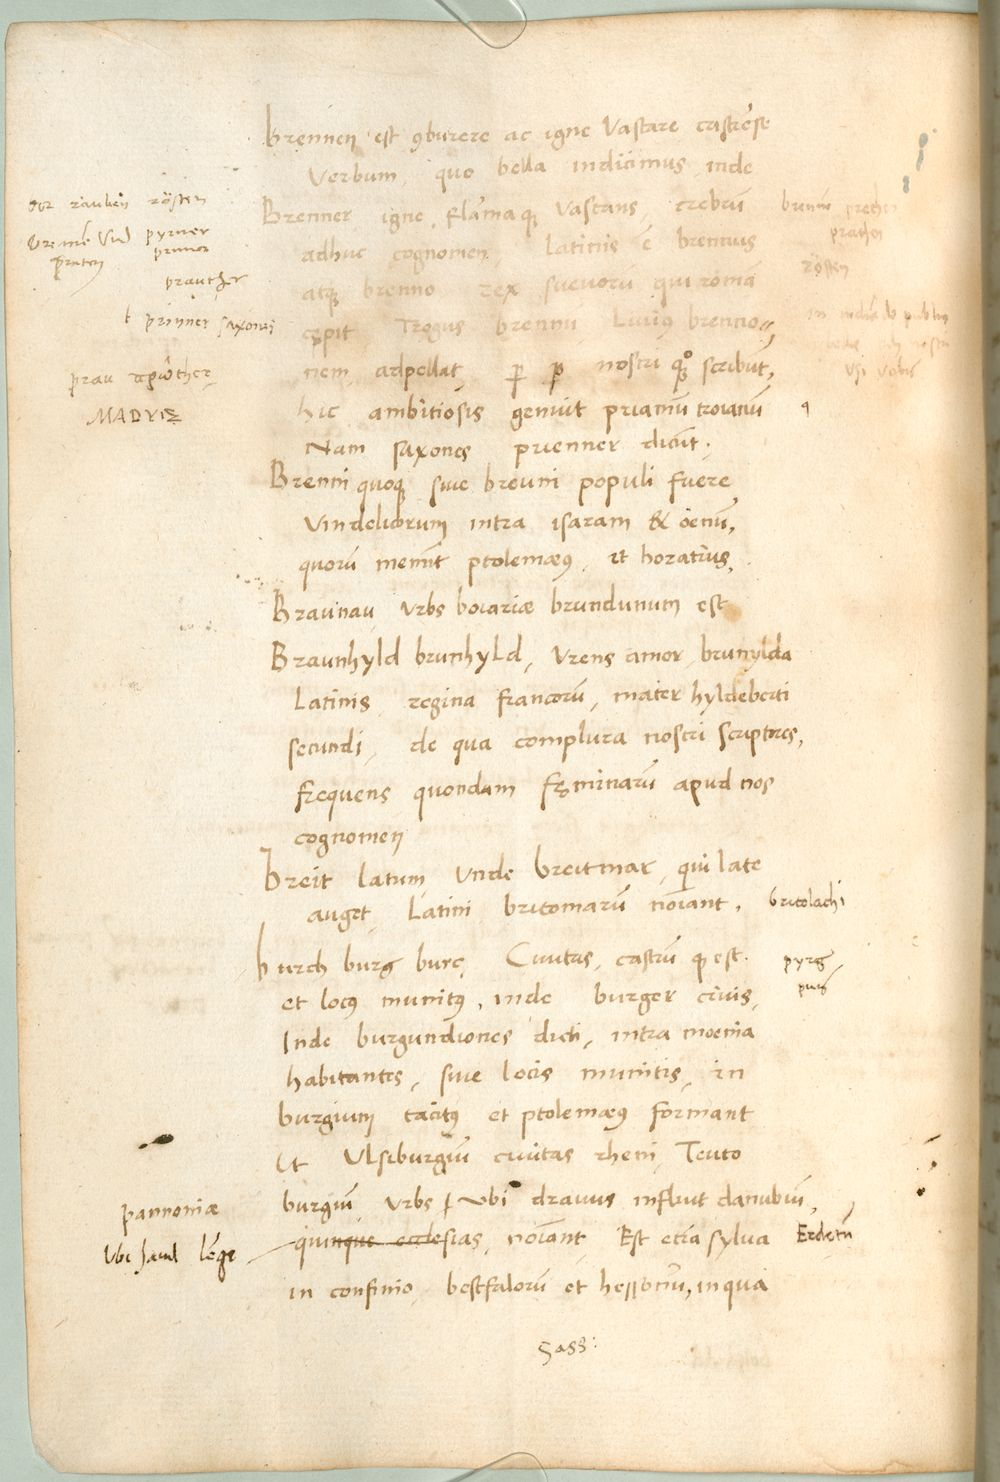 Brennen est 9burere ac igne Vastare castrēse
Verbum, quo bella indicimus, inde
Brenner igne, flāmaqꝫ Vastans, crebrū
adhuc cognomen, Latinis ē brennus
atqꝫ brenno rex suevorū qui romā
cępit, Trogus brennū Livius brennio//
nem, adpellat, nostri scribūt,
hic ambitiosis genuit priamū troianū
Nam saxones prienner dicūt.
Brenni quoqꝫ sive breuni populi fuere
Vindelicorum intra isaram & oenū,
quorū memīt ptolemæꝰ, et horatius,
Braunau, Vrbs boiariæ brundunum est
Braunhyld brunhyld, Vrens amor, brunylda
Latinis, regina francorū, mater hyldeberti
secundi, de qua complura nostri scriptores,
frequens quondam fęminarū apud nos
cognomen
Breit latum, Vnde breitmar, qui late
auget, Latini britomarū noīant,
burch burg burc, Civitas, castrū qꝫ est.
et locꝰ munitꝰ, inde burger civis,
Inde burgundiones dicti, intra moenia
habitantes, sive locis munitis, in
burgium tacitꝰ et ptolemæꝰ formant
Ut Vlsiburgiū civitas rheni, Teuto
burgiū Vrbs, Vbi dravus influit danubiū,
quinque ecclesias, noīant, Est etiā sylva
in confinio bestfalorū et hessorū, in qua
Sass:
rauben rösten
pyrner
prinner saxones
MADYIZ
rösten
britolachi
pyrg
purg
pannoniæ